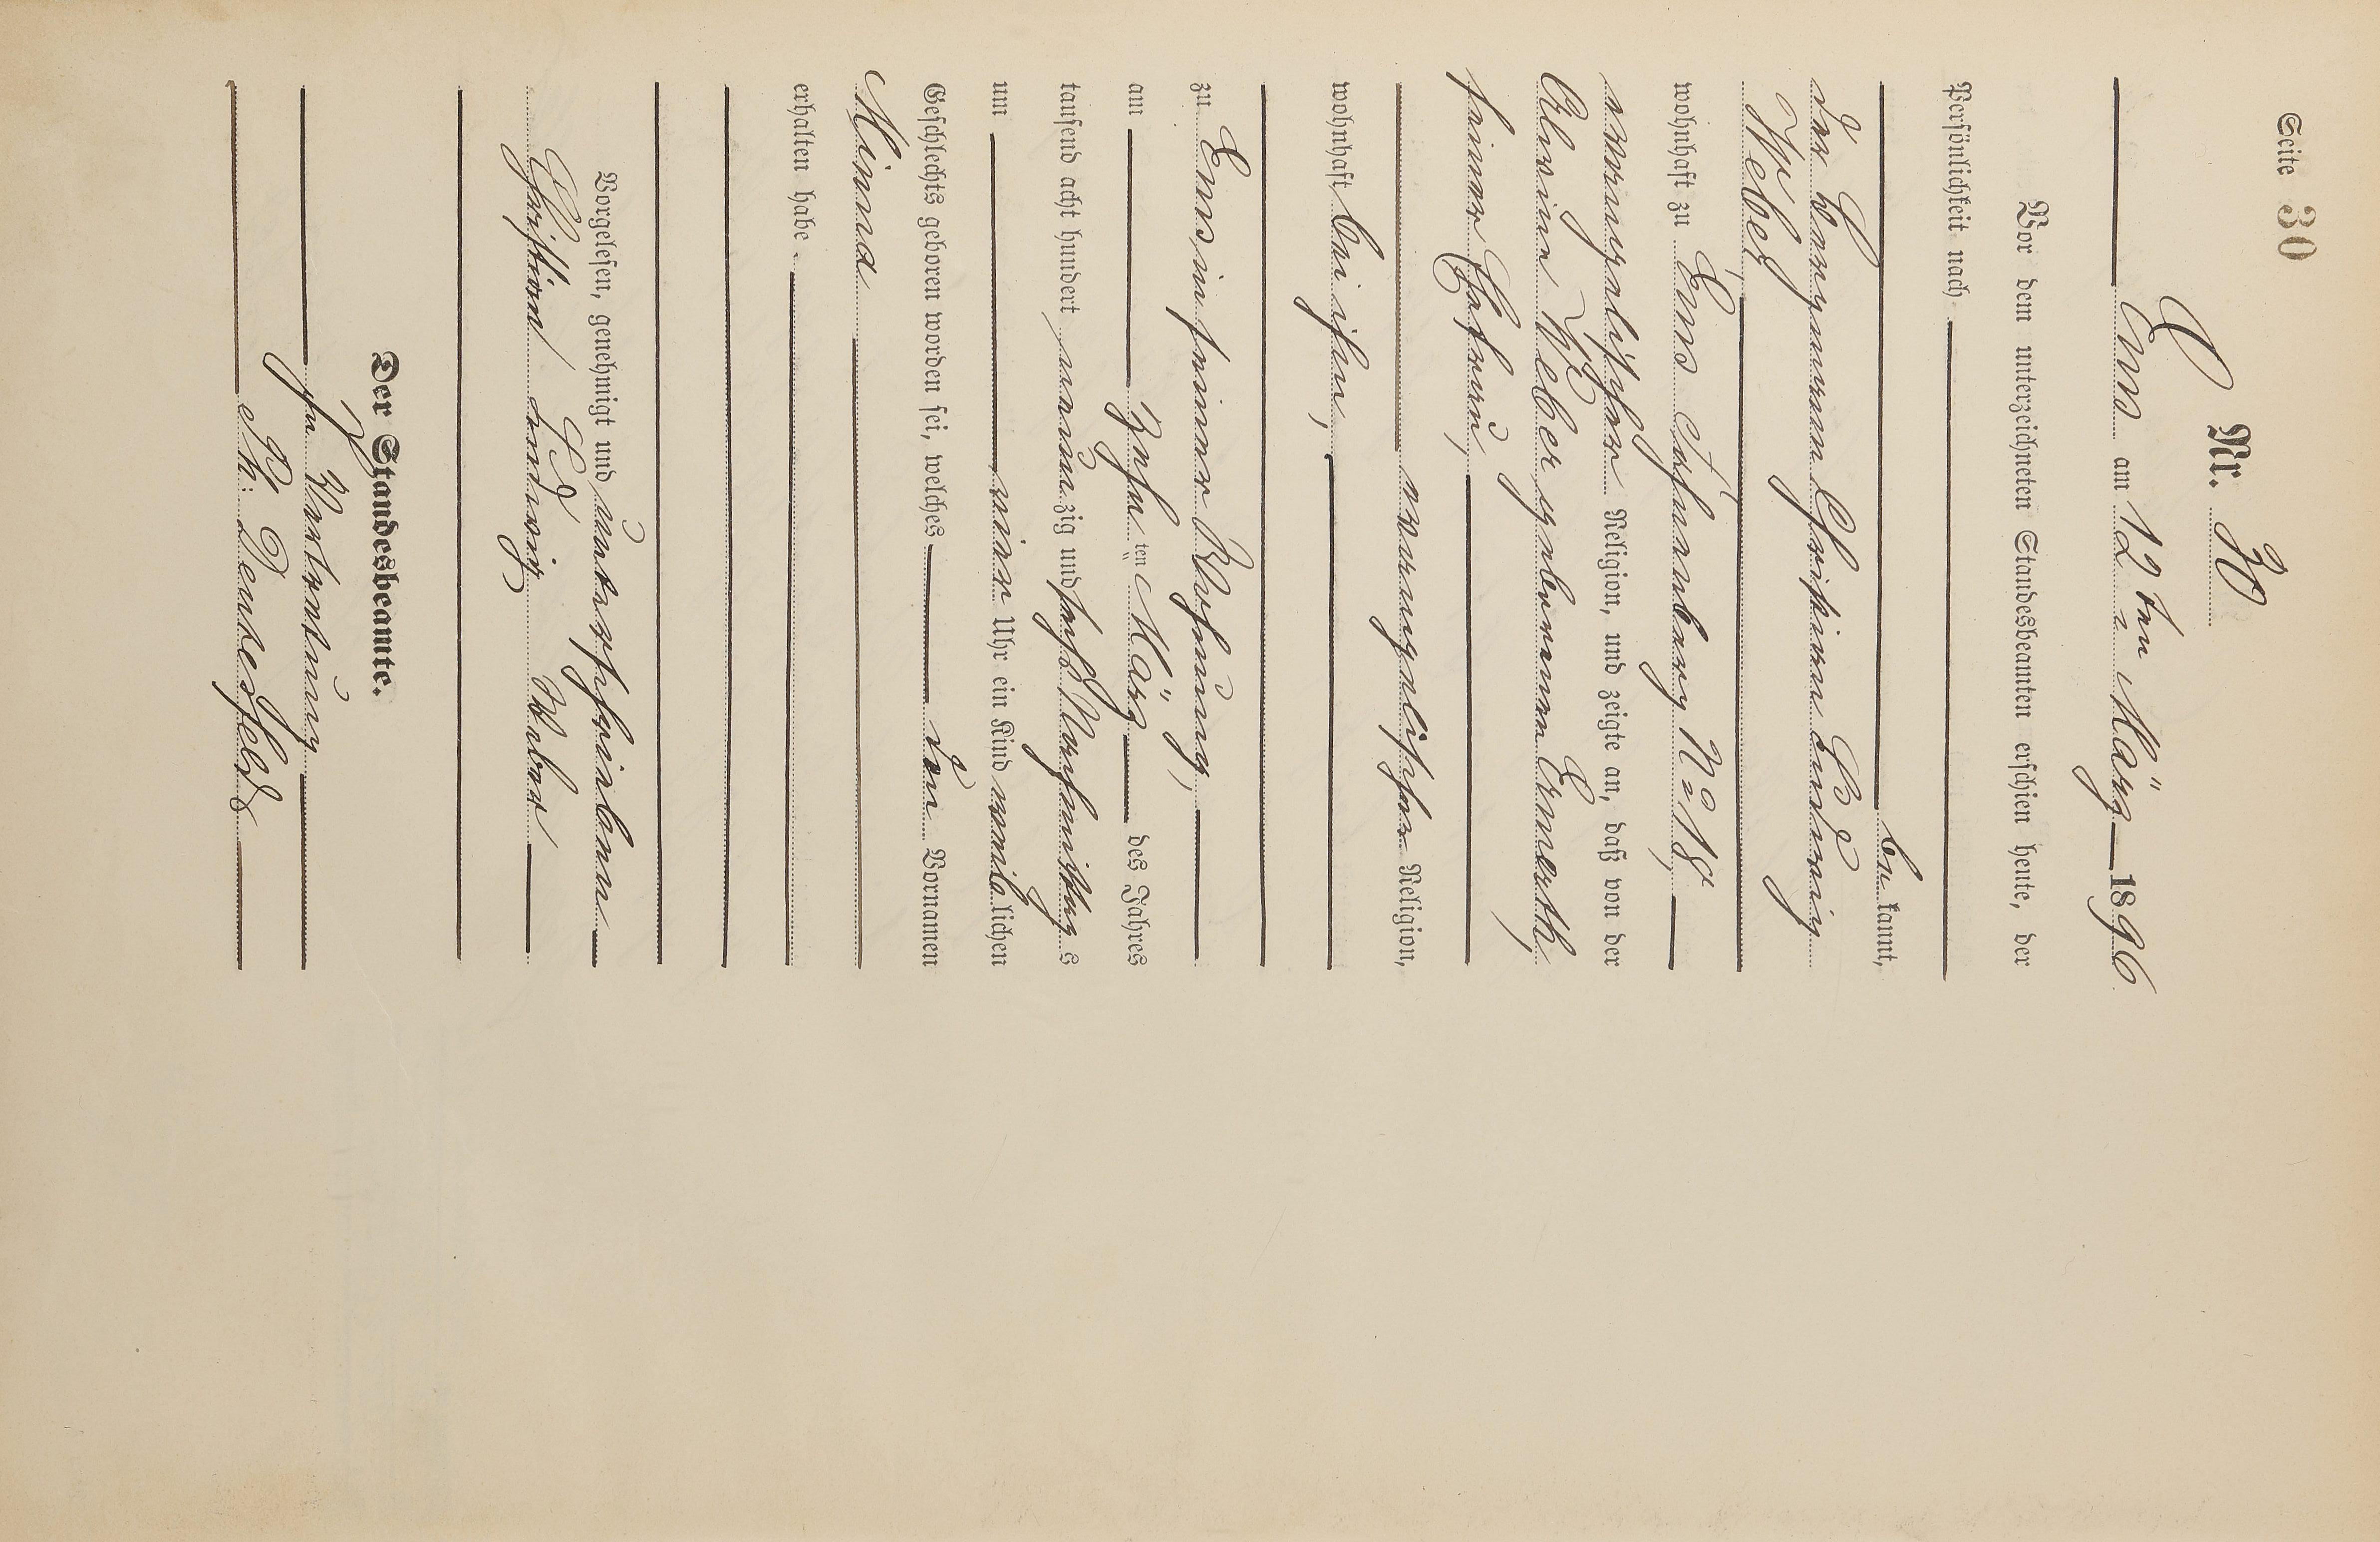 Seite 30
Nr. 30
Ems am 12ten März 1896
Vor dem unterzeichneten Standesbeamten erschien heute, der
Persönlichkeit nach
be kannt,
der Bergmann Christian Ludwig
Weber,
wohnhaft zu Ems No 18,
evangelischer Religion, und zeigte an, daß von der
Alwine Weber geborenen Ermerth,
seiner Ehefrau,
evangelischer Religion,
wohnhaft bei ihm,
zu Ems in seiner Wohnung,
am Zehn ten März des Jahres
tausend acht hundert neun zig und sechs Nachmittag s
um vier Uhr ein Kind weib lichen
Geschlechts geboren worden sei, welches den Vornamen
Minna
erhalten habe.
Vorgelesen, genehmigt und unterschrieben
Christian Ludwig Weber
Der Standesbeamte.
In Vertretung